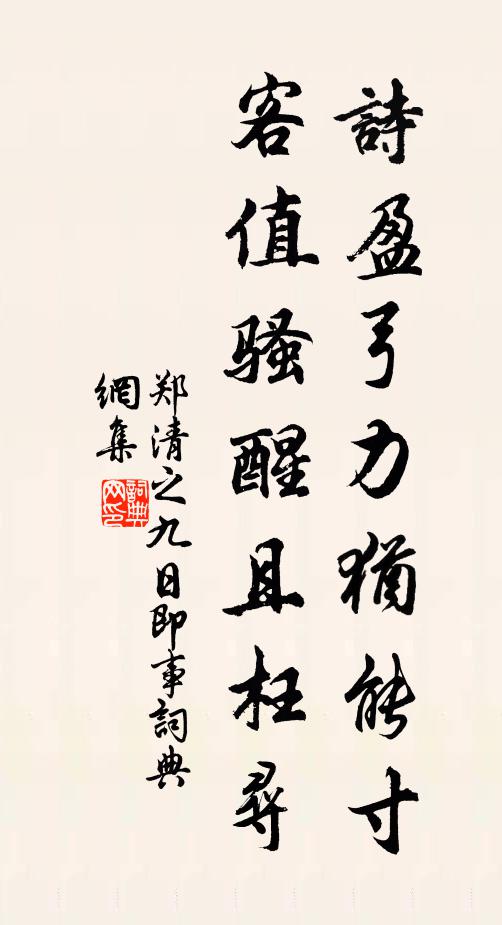 詩盈弓力猶能寸
客值骚醒且枉尋
郑清之九日即事詞典
網集
詞典網印